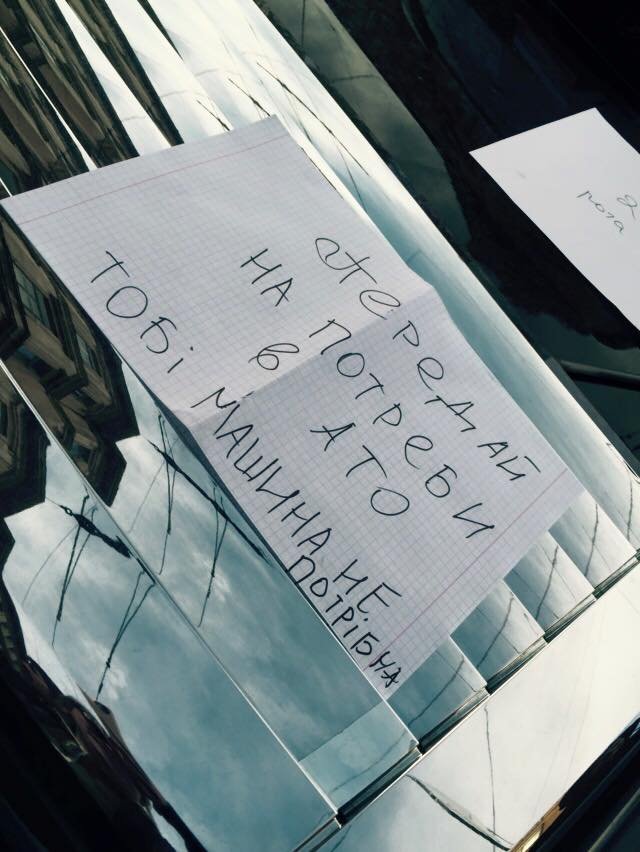 Передай
на потреби
в АТО
Тобі машина не
потрібна
2
рота